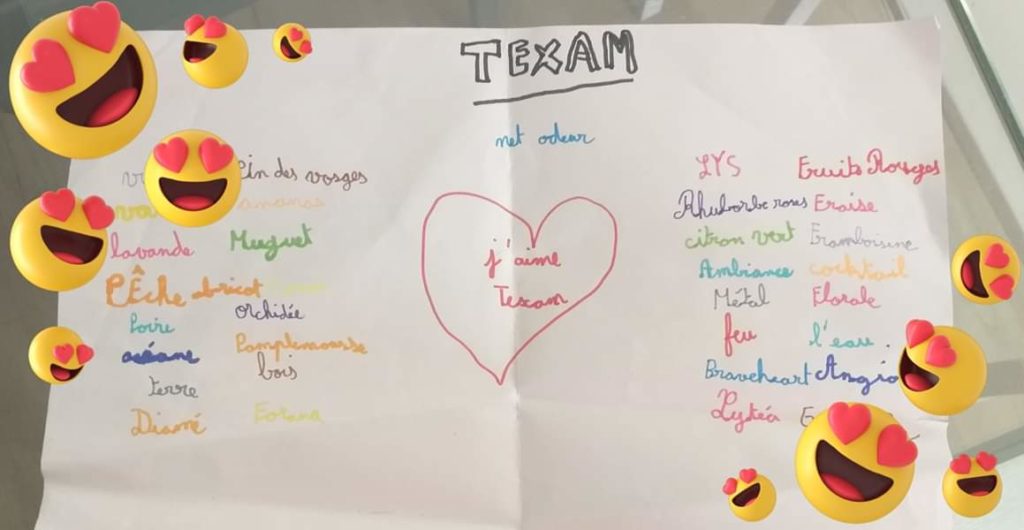 TEXAM
net odeur
Pin des vosges
ananas
lavande Muguet
PÊche abricot
orchidée
Poire
océane Pamplemousse
bois
terre
Diamé
j'aime
Texam
LYS Fruits Rouges
Rhubarbe roses Fraise
citron vert Framboisine
Ambiance cocktail
Métal Florale
feu l'eau.
Braveheart
Lytéa